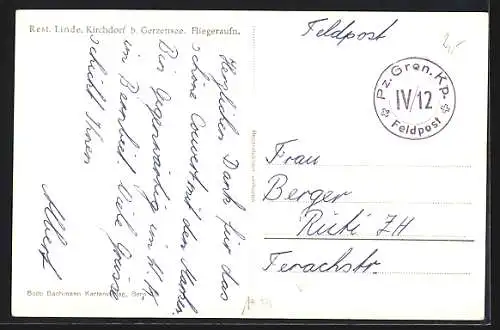 Rest. Linde, Kirchdorf b. Gerzensee. Fliegeraufn.
Herzlichen Dank für das
schöne Couvert mit den Marken.
Bin Gegenwärtig im W. K.
im Bernbiet. Viele Grüsse
schickt Ihnen
Albert
Buch Bachmann Kartenverlag, Bern
Feldpost
Pz. Gren. Kp.
IV/12
Feldpost
Frau
Berger
Rüti ZH
Ferachstr.